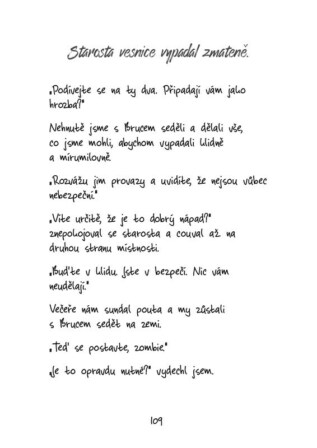 Starosta vesnice vypadal zmateně.
„Podívejte se na ty dva. Připadají vám jako
hrozba?“
Nehnutě jsme s Brucem seděli a dělali vše,
co jsme mohli, abychom vypadali klidně
a mírumilovně.
„Rozvážu jim provazy a uvidíte, že nejsou vůbec
nebezpeční.“
„Víte určitě, že je to dobrý nápad?“
znepokojoval se starosta a couval až na
druhou stranu místnosti.
„Buďte v klidu. Jste v bezpečí. Nic vám
neudělají.“
Večeře nám sundal pouta a my zůstali
s Brucem sedět na zemi.
„Teď se postavte, zombie.“
„Je to opravdu nutné?“ vydechl jsem.
109